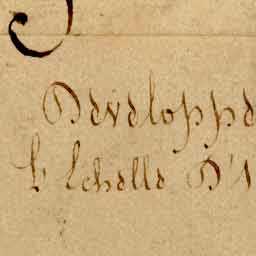 Developpe
L'Echelle D'1